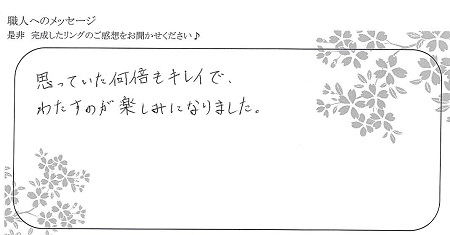 職人へのメッセージ
是非 完成したリングのご感想をお聞かせください♪
思っていた何倍もキレイで、
わたすのが楽しみになりました。